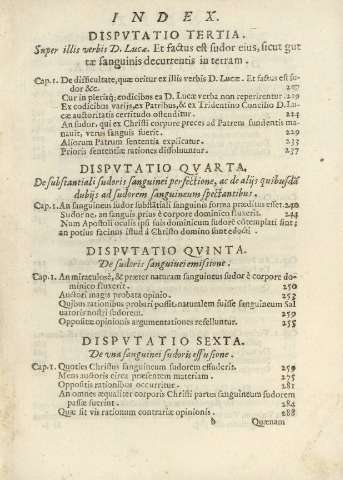 INDEX.
DISPVTATIO TERTIA.
Super illis verbis D. Lucæ. Et factus est sudor eius, sicut gut
tæ sanguinis decurrentis in terram.
Cap. 1. De difficultate, quæ oritur ex illis verbis D. Lucæ. Et factus est su-
dor &c. 227
Cur in plerisq; codicibus ea D. Lucæ verba non reperirentur. 229
Ex codicibus varijs, ex Patribus, & ex Tridentino Concilio D. Lu-
cæ auctoritatis certitudo ostenditur. 224
An sudor, qui ex Christi corpore preces ad Patrem fundentis ma-
nauit, verus sanguis fuerit. 229
Aliorum Patrum sententia explicatur. 233
Prioris sententiæ rationes dissoluuntur. 237
DISPVTATIO QVARTA.
De substantiali sudoris sanguinei perfectione, ac de alijs quibusdã
dubijs ad sudorem sanguineum spectantibus.
Cap. 1. An sanguineus sudor substãtiali sanguinis forma præditus esset. 240
Sudor ne, an sanguis prius è corpore dominico fluxerit. 244
Num Apostoli oculis ipsi suis dominicum sudorẽ cõtemplati sint;
an potius facinus istud á Christo domino sunt edocti.
DISPVTATIO QVINTA.
De sudoris sanguinei emissione.
Cap. 1. An miraculosè, & præter naturam sanguineus sudor è corpore do-
minico fluxerit. 250
Auctori magis probata opinio. 253
Quibus rationibus probari possit, naturalem fuisse sanguineum Sal
uatoris nostri sudorem. 259
Oppositæ opinionis argumentationes refelluntur. 255
DISPVTATIO SEXTA.
De vna sanguinei sudoris effusione.
Cap. 1. Quoties Christus sanguineum sudorem effuderit. 259
Mens auctoris circa præsentem materiam. 275
Oppositis rationibus occurritur. 281
An omnes æqualiter corporis Christi partes sanguineum sudorem
passæ fuerint. 284
Quæ sit vis rationum contrariæ opinionis. 288
b Quænam